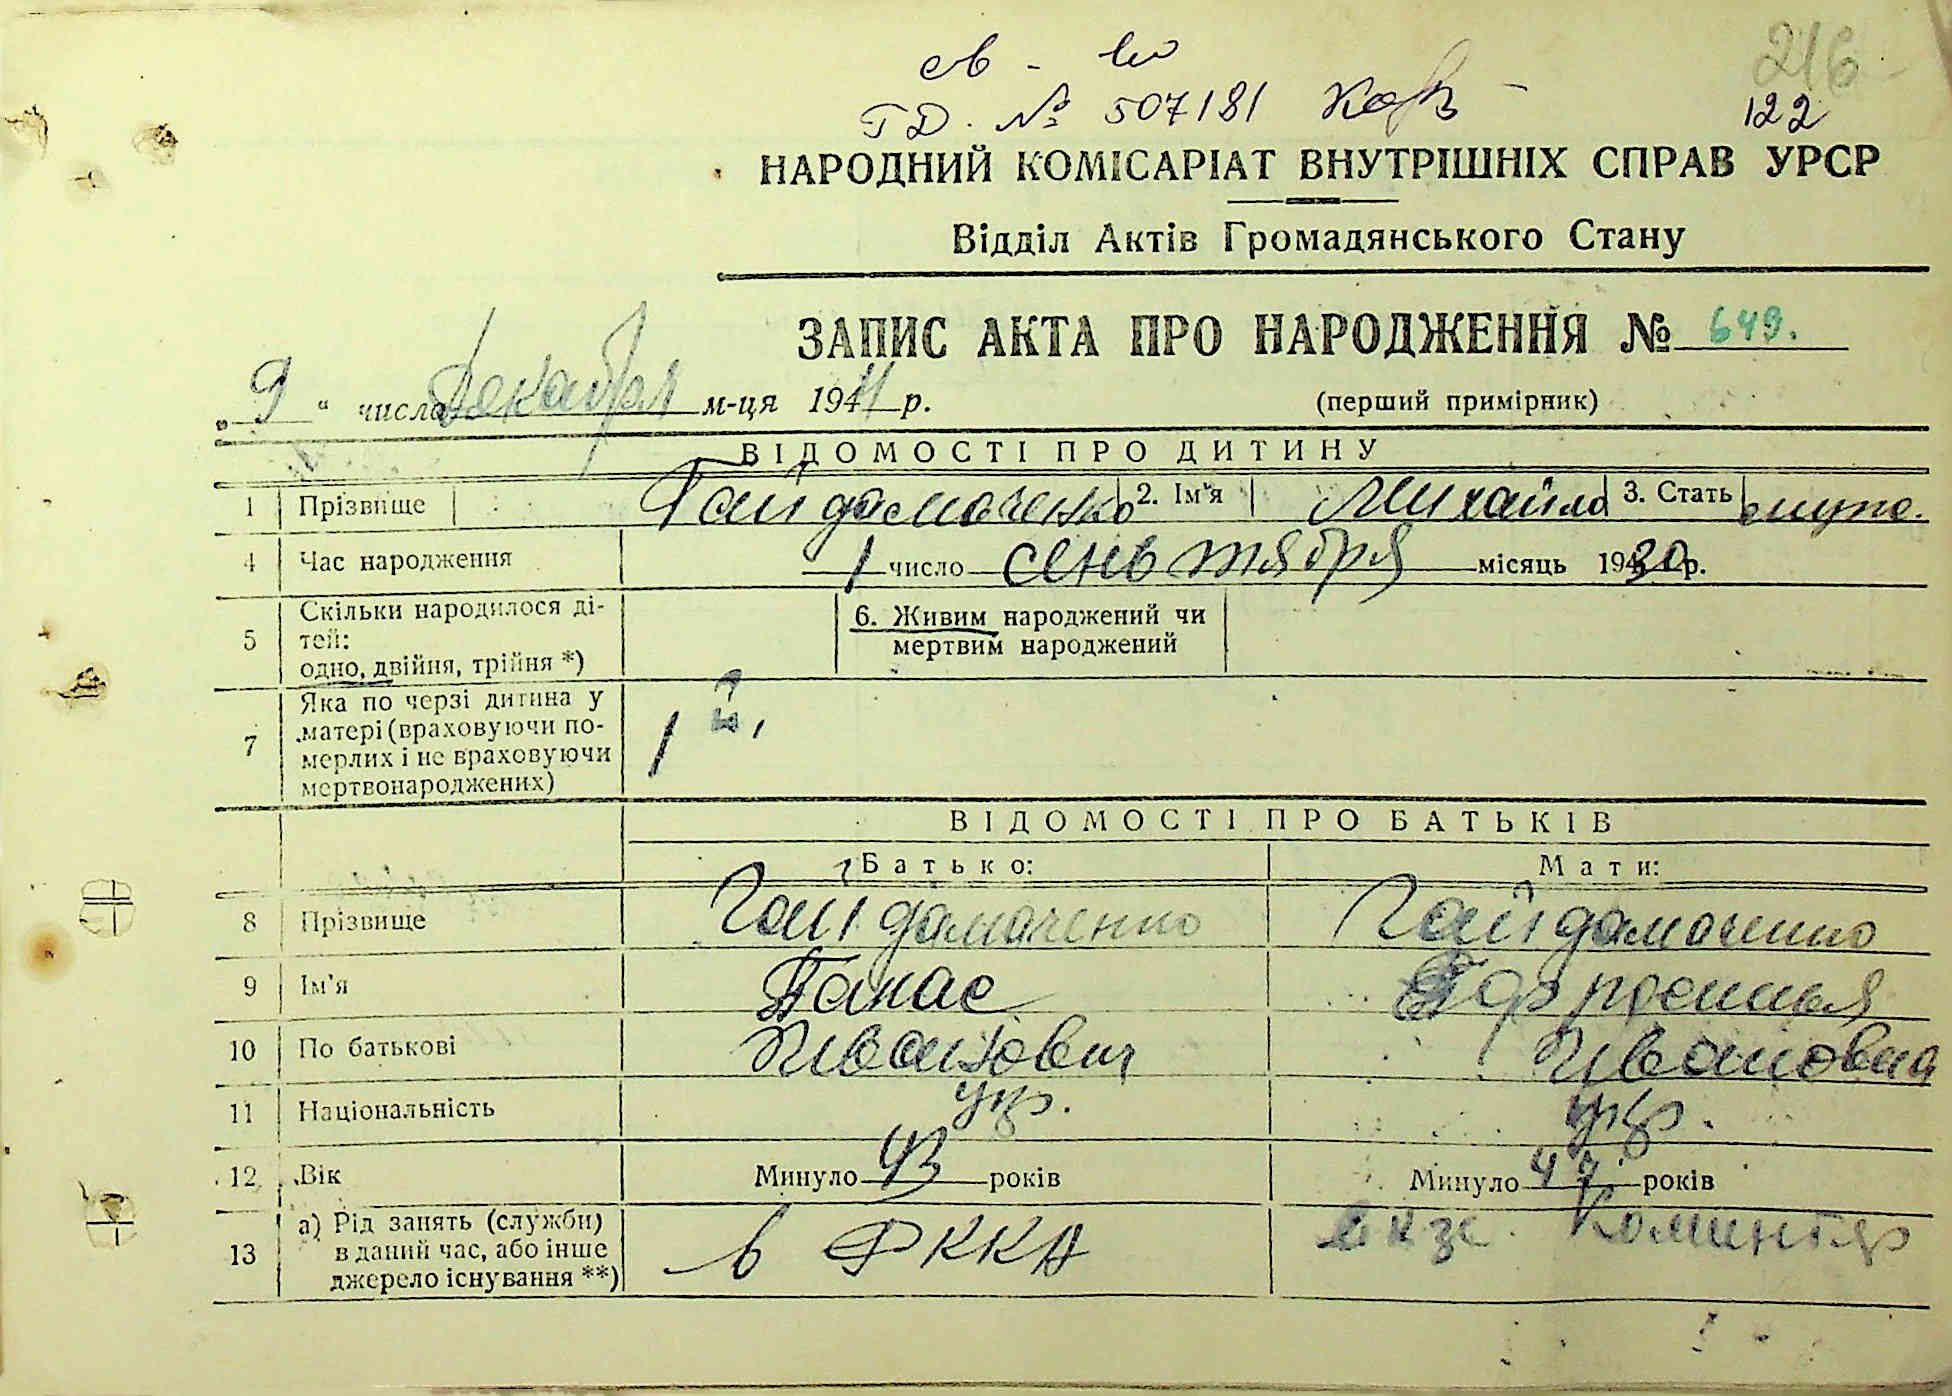 216
св - во
ГД. № 507181
122
НАРОДНИЙ КОМІСАРІАТ ВНУТРІШНІХ СПРАВ УРСР
Відділ Актів Громадянського Стану
ЗАПИС АКТА ПРО НАРОДЖЕННЯ № 649.
(перший примірник)
„ 9 " числа Декабря м-ця 1941 р.
ВІДОМОСТІ ПРО ДИТИНУ
1 Прізвище Гайдамаченко 2. Ім'я Михайло 3. Стать муж.
4 Час народження 1 число сентября місяць 1930 р.
5 Скільки народилося ді-
тей:
одно, двійня, трійня *)
6. Живим народжений чи
мертвим народжений
7 Яка по черзі дитина у
матері (враховуючи по-
мерлих і не враховуючи
мертвонароджених)
1й
ВІДОМОСТІ ПРО БАТЬКІВ
Батько: Мати:
8 Прізвище Гайдамаченко Гайдамаченко
9 Ім'я Панас
10 По батькові Иванович Ивановна
11 Національність укр. укр.
12 Вік Минуло 43 років Минуло 47 років
13 а) Рід занять (служби)
в даний час, або інше
джерело існування **)
в РККА
к-зе. Коминтерн